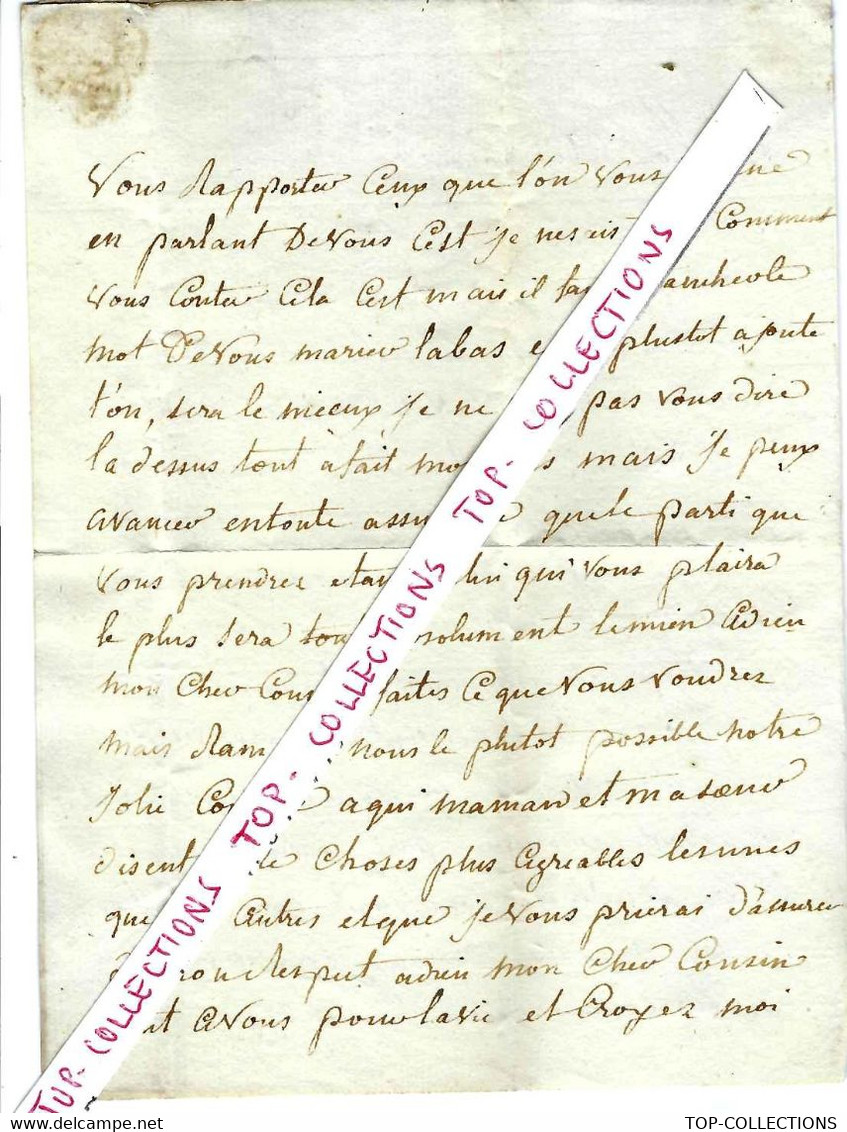 Vous Rapporter Ceux que l'on vous
en parlant De vous C'est je ne sais Comment
vous Conter Cela C'est mais il le
mot De vous marier labas plustot ajoute
t'on, sera le mieux je ne pas vous dire
la dessus tout a fait mais je peux
avancer en toute que le parti que
vous prendrez qui vous plaira
le plus sera le mien Adieu
mon Cher faites Ce que vous voudrez
mais nous le plutot possible notre
Jolie a qui maman et ma soeur
disent Choses plus agreables les unes
que Autres et que je vous prierai d'assurer
Respect adieu mon Cher Cousin
a vous pour la vie et Croyez moi
TOP-COLLECTIONS TOP-COLLECTIONS TOP-COLLECTIONS TOP-COLLECTIONS
TOP-COLLECTIONS